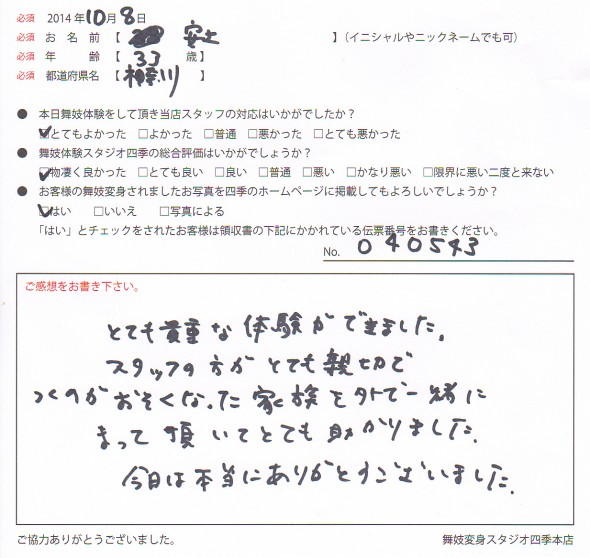 必須 2014年10月8日
必須 お名前【 安土 】(イニシャルやニックネームでも可)
必須 年齢【 33 歳】
必須 都道府県名【神奈川】
● 本日舞妓体験をして頂き当店スタッフの対応はいかがでしたか?
☑とてもよかった □よかった □普通 □悪かった □とても悪かった
● 舞妓体験スタジオ四季の総合評価はいかがでしょうか?
☑物凄く良かった □とても良い □良い □普通 □悪い □かなり悪い □限界に悪い二度と来ない
● お客様の舞妓変身されましたお写真を四季のホームページに掲載してもよろしいでしょうか?
☑はい □いいえ □写真による
「はい」とチェックをされたお客様は領収書の下記にかかれている伝票番号をお書きください。
No. 040543
ご感想をお書き下さい。
とても貴重な体験ができました。
スタッフの方がとても親切で
つくのがおそくなった家族を外で一緒に
まって頂いてとても助かりました。
今日は本当にありがとうございました。
ご協力ありがとうございました。
舞妓変身スタジオ四季本店